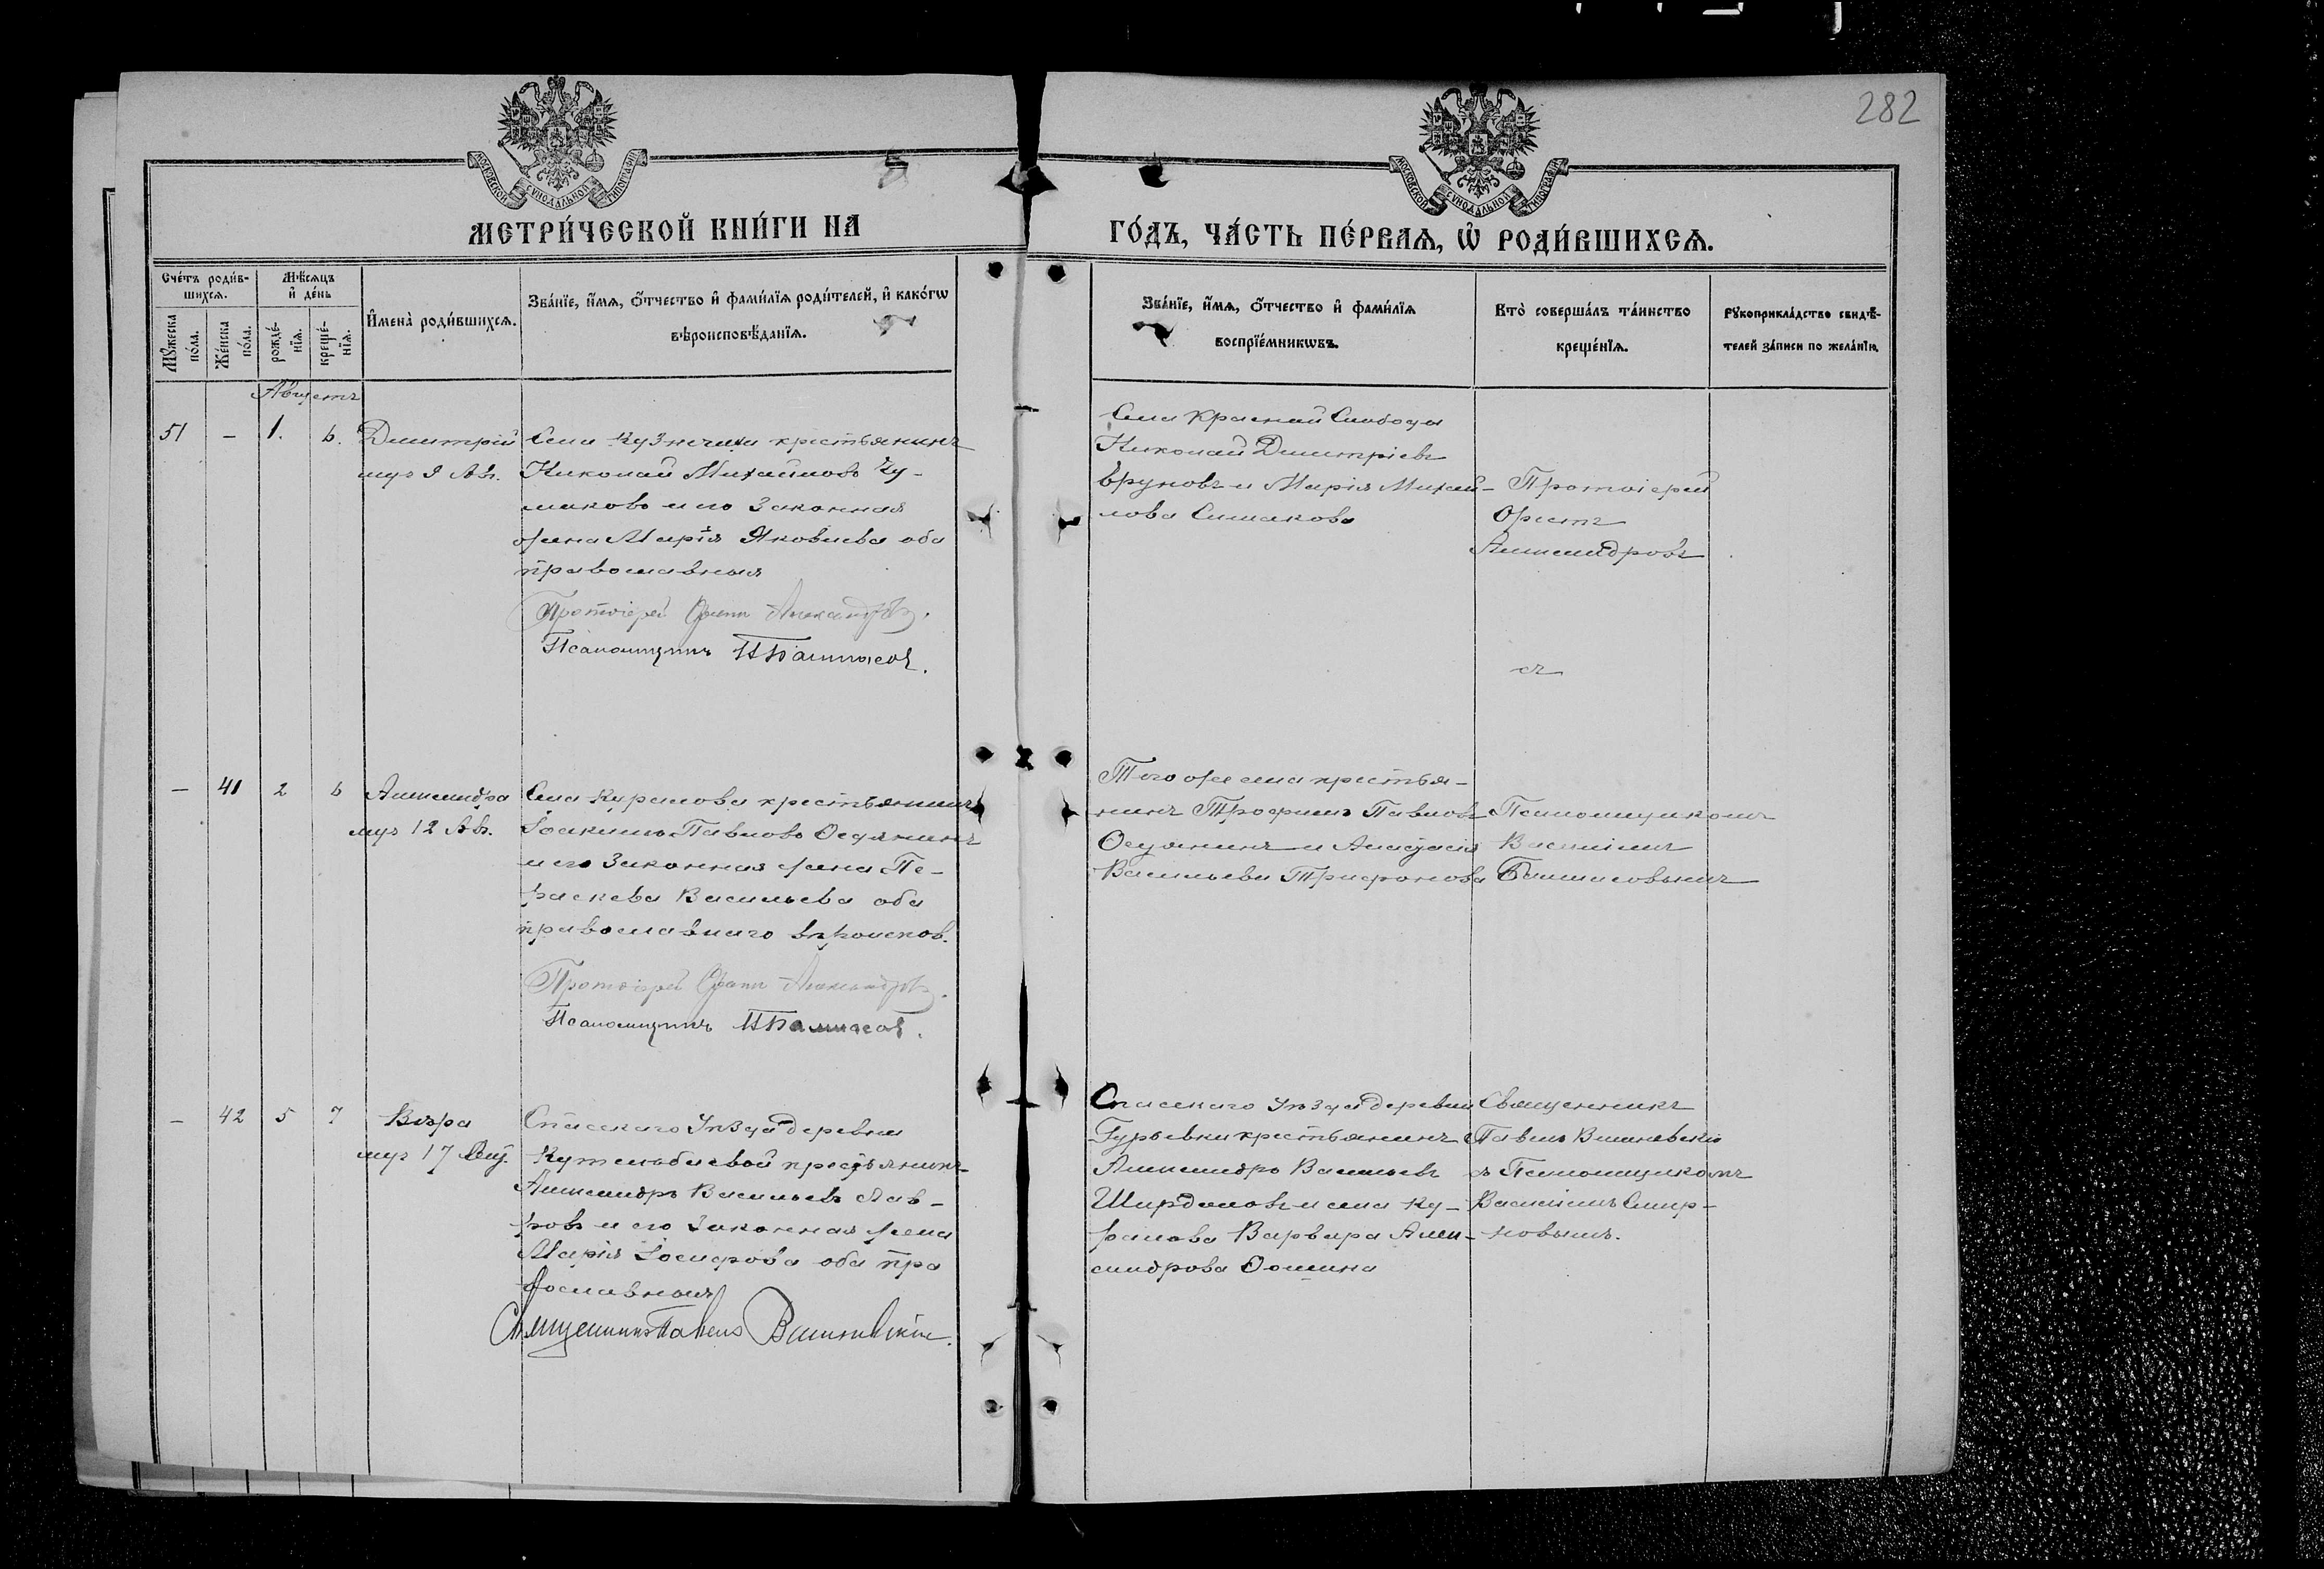 282
МОСКОВСКОЙ СѴНОДАЛЬНОЙ ТИПОГРАФІИ
МОСКОВСКОЙ СѴНОДАЛЬНОЙ ТИПОГРАФІИ
МЕТРИ́ЧЕСКОЙ КНИ́ГИ НА
ГО́ДЪ, ЧА́СТЬ ПЕ́РВАѦ, Ѡ҆ РОДИ́ВШИХСѦ.
Сче́тъ роди́в-
шихсѧ.
Мꙋ́жеска
по́ла.
Же́нска
по́ла.
Мѣ́сѧцъ
и҆ де́нь
рожде́-
нїѧ.
креще́-
нїѧ.
И҆мена̀ роди́вшихсѧ.
Зва́нїе, и҆́мѧ, ѻ҆́тчество и҆ фами́лїѧ роди́телей, и҆ како́гѡ
вѣроисповѣ́данїѧ.
Зва́нїе, и҆́мѧ, ѻ҆́тчество и҆ фами́лїѧ
воспрїе́мникѡвъ.
Кто̀ соверша́лъ та́инство
креще́нїѧ.
Рꙋкоприкла́дство свидѣ́-
телей за́писи по жела́нїю.
Августъ
51 – 1. 6. Димитрій
муч 9 Ав.
Села Кузнечихи крестьянинъ
Николай Михайловъ Чу-
маковъ и его законная
жена Марія Яковлева оба
православныя
Протоіерей Орестъ Александровъ.
Псаломщикъ
Села Красной Слободы
Николай Димитріевъ
и Марія Михай-
лова Симакова
Протоіерей
Орестъ
Александровъ
съ
– 41 2 6 Александра
муч 12 Ав.
Села Куралова крестьянинъ
Іоакимъ Павловъ Осянинъ
и его законная жена Пе-
раскева Васильева оба
православнаго вѣроиспов.
Протоіерей Орестъ Александровъ.
Псаломщикъ
Того же села крестья-
нинъ Трофимъ Павловъ
и
Васильева Трифонова
Псаломщикомъ
Василіемъ
– 42 5 7 Вѣра
муч 17
Спасскаго Уѣзда деревни
крестьянинъ
Александръ Васильевъ Лав-
ровъ и его законная жена
Марія Іосифова оба пра
вославныя
Священникъ Павелъ Вишневскій.
Спасскаго Уѣзда деревни
Гурьевки крестьянинъ
Александръ Васильевъ
и села Ку-
ралова Варвара Алек-
сандрова Фомина
Священникъ
Павелъ Вишневскій
съ Псаломщикомъ
Василіемъ Смир-
новымъ.